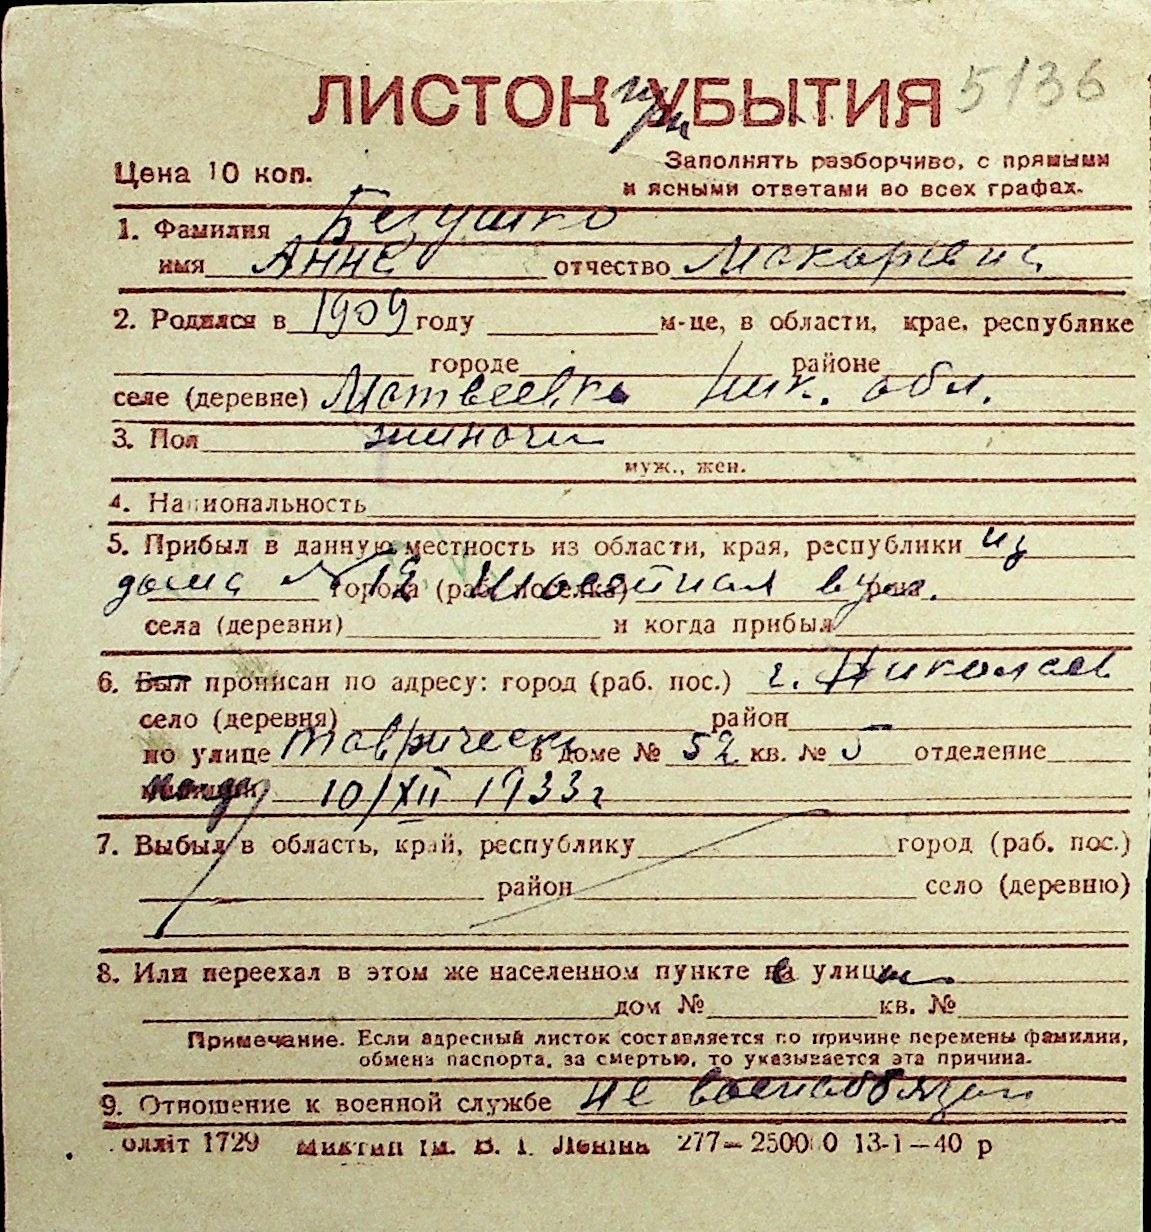 ЛИСТОК при УБЫТИЯ 5136
Цена 10 коп.
Заполнять разборчиво, с прямыми
и ясными ответами во всех графах.
1. Фамилия
имя Анна отчество Макаровна
2. Родился в 1909 году м-це, в области, крае, республике
городе районе
селе (деревне) Матвеевка Ник. обл.
3. Пол
муж., жен.
4. Национальность
5. Прибыл в данную местность из области, края, республики из
дома № города (раб. поселка)
села (деревни) и когда прибыл
6. Был прописан по адресу: город (раб. пос.) г. Николаев
село (деревня) район
по улице Таврическ в доме № 52 кв. № 5 отделение
10/XII 1933 г
7. Выбыл в область, край, республику город (раб. пос.)
район село (деревню)
8. Или переехал в этом же населенном пункте на улицу
дом № кв. №
Примечание. Если адресный листок составляется по причине перемены фамилии,
обмена паспорта, за смертью, то указывается эта причина.
9. Отношение к военной службе не военообязан
олліт 1729 ім. В. І. Леніна 277—25000 13-1—40 р